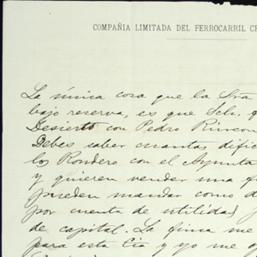 COMPAÑIA LIMITADA DEL FERROCARRIL C
La única cosa que la Sra
bajo reserva, es que Sch.
Desierto con Pedro Rincon
Debes saber cuantas dific
los Rondero con el Ayunta
y quieren vender una f
pueden mandar como d
por cuenta de utilidad
de capital. La finca me
para esta Cia y yo me o